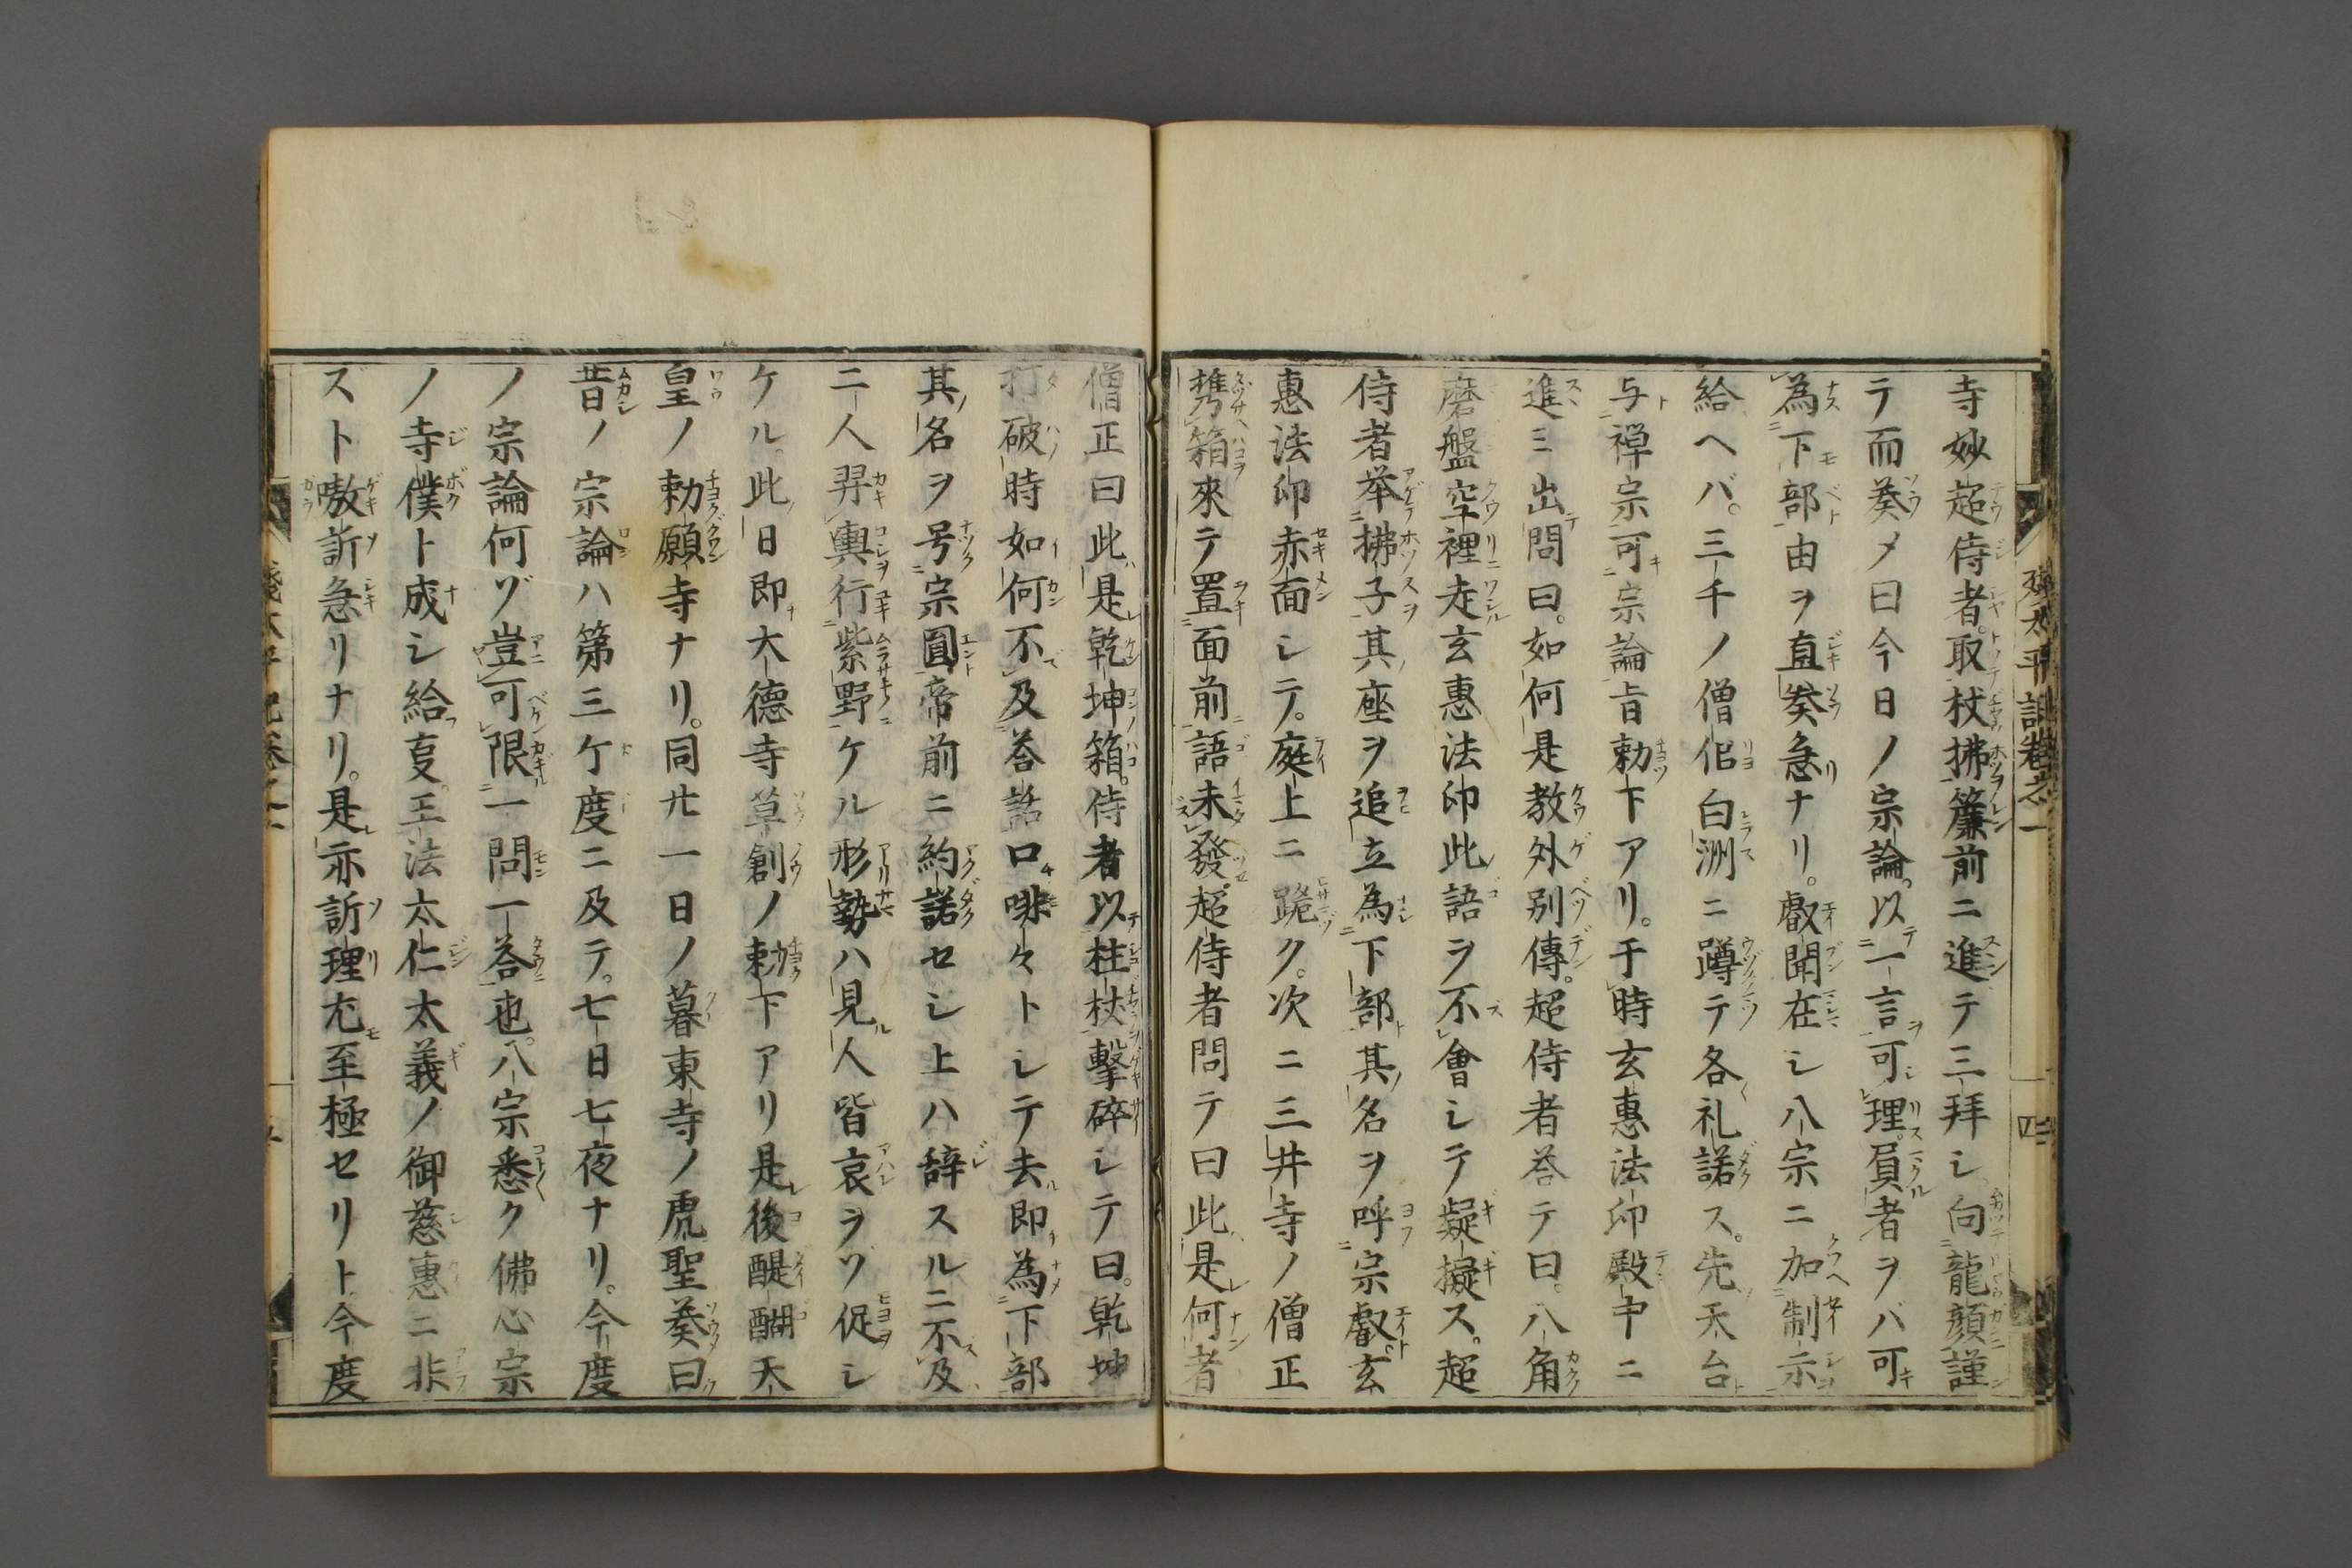 残太平記巻之一
四
寺妙超侍者取杖拂簾前ニ進テ三拜シ向龍顔謹
テ而奏メ曰今日ノ宗論以一言可理屓者ヲバ可
為下部由ヲ直奏急ナリ。叡聞在シ八宗ニ加制示
給ヘバ。三千ノ僧侶白洲ニ蹲テ各礼諾ス。先天台
与禅宗可宗論旨勅下アリ。于時玄惠法印殿中ニ
進ミ出問曰。如何是教外別傳。超侍者荅テ曰。八角
磨盤空裡走玄惠法印此語ヲ不會シテ疑擬ス。超
侍者举拂子其座ヲ追立為下部其名ヲ呼宗叡。玄
惠法印赤面シテ。庭上ニ跪ク。次ニ三井寺ノ僧正
携箱來テ置面前語未發。超侍者問テ曰此是何者
僧正曰此是乾坤箱。侍者以柱杖擊碎シテ曰。乾坤
打破時如何不及荅話口啡々トシテ去即為下部
其名ヲ号宗圓帝前ニ約諾セシ上ハ辞スルニ不及
二人舁輿行紫野ケル形勢ハ見人皆哀ヲソ促シ
ケル。此日即大德寺草創ノ勅下アリ是後醍醐天
皇ノ勅願寺ナリ。同廿一日ノ暮東寺ノ虎聖奏曰
昔ノ宗論ハ第三ケ度ニ及テ。七日七夜ナリ。今度
ノ宗論何ヅ豈可限一問一荅也。八宗悉ク佛心宗
ノ寺僕ト成シ給亥。王法太仁太義ノ御慈惠ニ非
スト嗷訴急リナリ。是亦訴理尤至極セリト今度